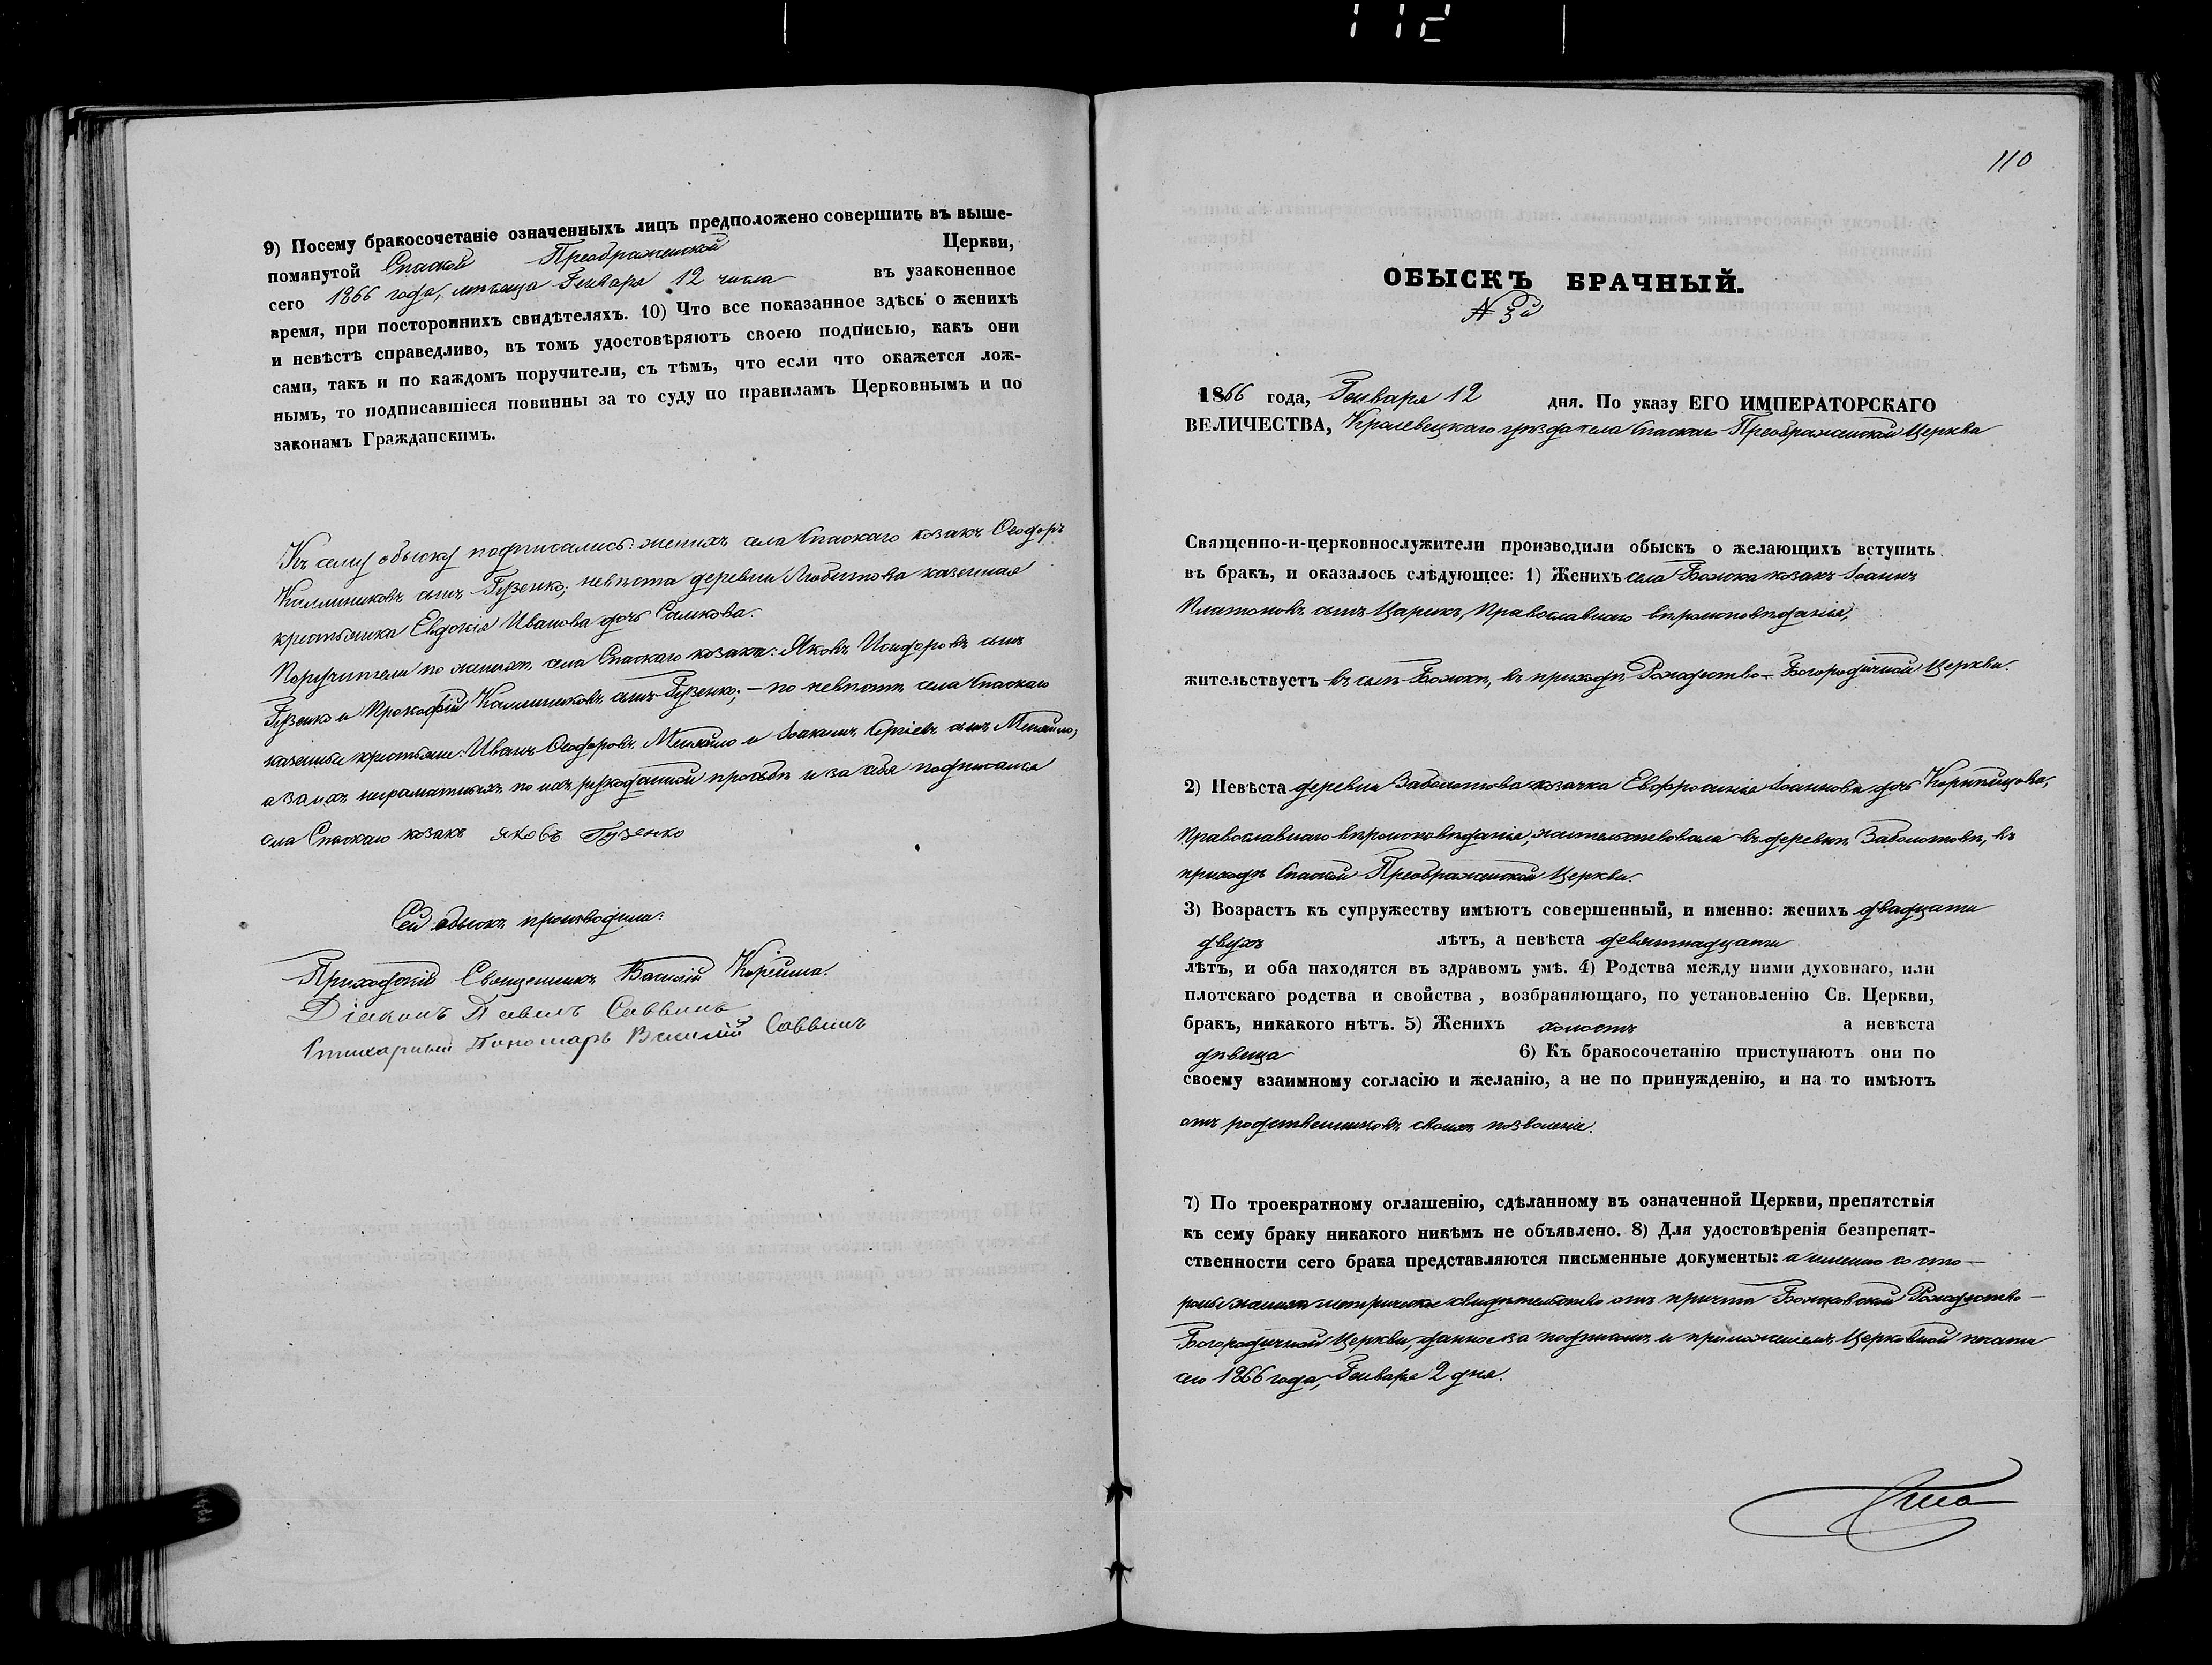 112
9) Посему бракосочетаніе означенныхъ лицъ предположено совершить въ выше-
помянутой Спаской Преображенской Церкви,
сего 1866 года, мѣсяца Генваря 12 числа въ узаконенное
время, при постороннихъ свидѣтеляхъ. 10) Что все показанное здѣсь о женихѣ
и невѣстѣ справедливо, въ томъ удостовѣряютъ своею подписью, какъ они
сами, такъ и по каждомъ поручители, съ тѣмъ, что если что окажется лож-
нымъ, то подписавшіеся повинны за то суду по правиламъ Церковнымъ и по
законамъ Гражданскимъ.
Къ сему обыску подписались: женихъ села Спаскаго козакъ Ѳеодоръ
Каллиниковъ сынъ Гузенко; невѣста деревни Любитова казенная
крестьянка Евдокія Иванова дочь
Поручители по женихѣ села Спаскаго козаки: Яковъ Исидоровъ сынъ
Гузенко и Прокофій Каллиниковъ сынъ Гузенко; — по невѣстѣ села Спаскаго
казенные крестьяне: Иванъ Ѳеодоровъ и Іоакимъ Сергіевъ сынъ
а за ихъ неграматныхъ по ихъ рукоданной прозьбѣ и за себя подписался
села Спаскаго козакъ Яковъ Гузенко
Сей обыскъ производили:
Приходскій Священникъ Василій
Діаконъ Павелъ Саввинъ
Стихарный Пономарь Василій Саввинъ
110
ОБЫСКЪ БРАЧНЫЙ.
№ 3й
1866 года, Генваря 12 дня. По указу ЕГО ИМПЕРАТОРСКАГО
ВЕЛИЧЕСТВА, Кролевецкаго уѣзда села Спаскаго Преображенской Церкви
Священно-и-церковнослужители производили обыскъ о желающихъ вступить
въ бракъ, и оказалось слѣдующее: 1) Женихъ села Божока козакъ Іоаннъ
Платоновъ сынъ Царикъ, Православнаго вѣроисповѣданія,
жительствуетъ въ селѣ Божокѣ, въ приходѣ Рождество-Богородичной Церкви.
2) Невѣста деревни Заболотова козачка Евфросинія Іоаннова дочь
Православнаго вѣроисповѣданія, жительствовала въ деревнѣ Заболотовѣ, въ
приходѣ Спаской Преображенской Церкви.
3) Возрастъ къ супружеству имѣютъ совершенный, и именно: женихъ двадцати
двухъ лѣтъ, а невѣста девятнадцати
лѣтъ, и оба находятся въ здравомъ умѣ. 4) Родства между ними духовнаго, или
плотскаго родства и свойства, возбраняющаго, по установленію Св. Церкви,
бракъ, никакого нѣтъ. 5) Женихъ холостъ а невѣста
дѣвица 6) Къ бракосочетанію приступаютъ они по
своему взаимному согласію и желанію, а не по принужденію, и на то имѣютъ
отъ родственниковъ своихъ позволеніе.
7) По троекратному оглашенію, сдѣланному въ означенной Церкви, препятствія
къ сему браку никакого никѣмъ не объявлено. 8) Для удостовѣренія безпрепят-
ственности сего брака представляются письменные документы: а именно со сто-
роны жениха метрическое свидѣтельство отъ причта Рождество-
Богородичной Церкви, данное за подписомъ и приложеніемъ Церковной печати
сего 1866 года, Генваря 2 дня.